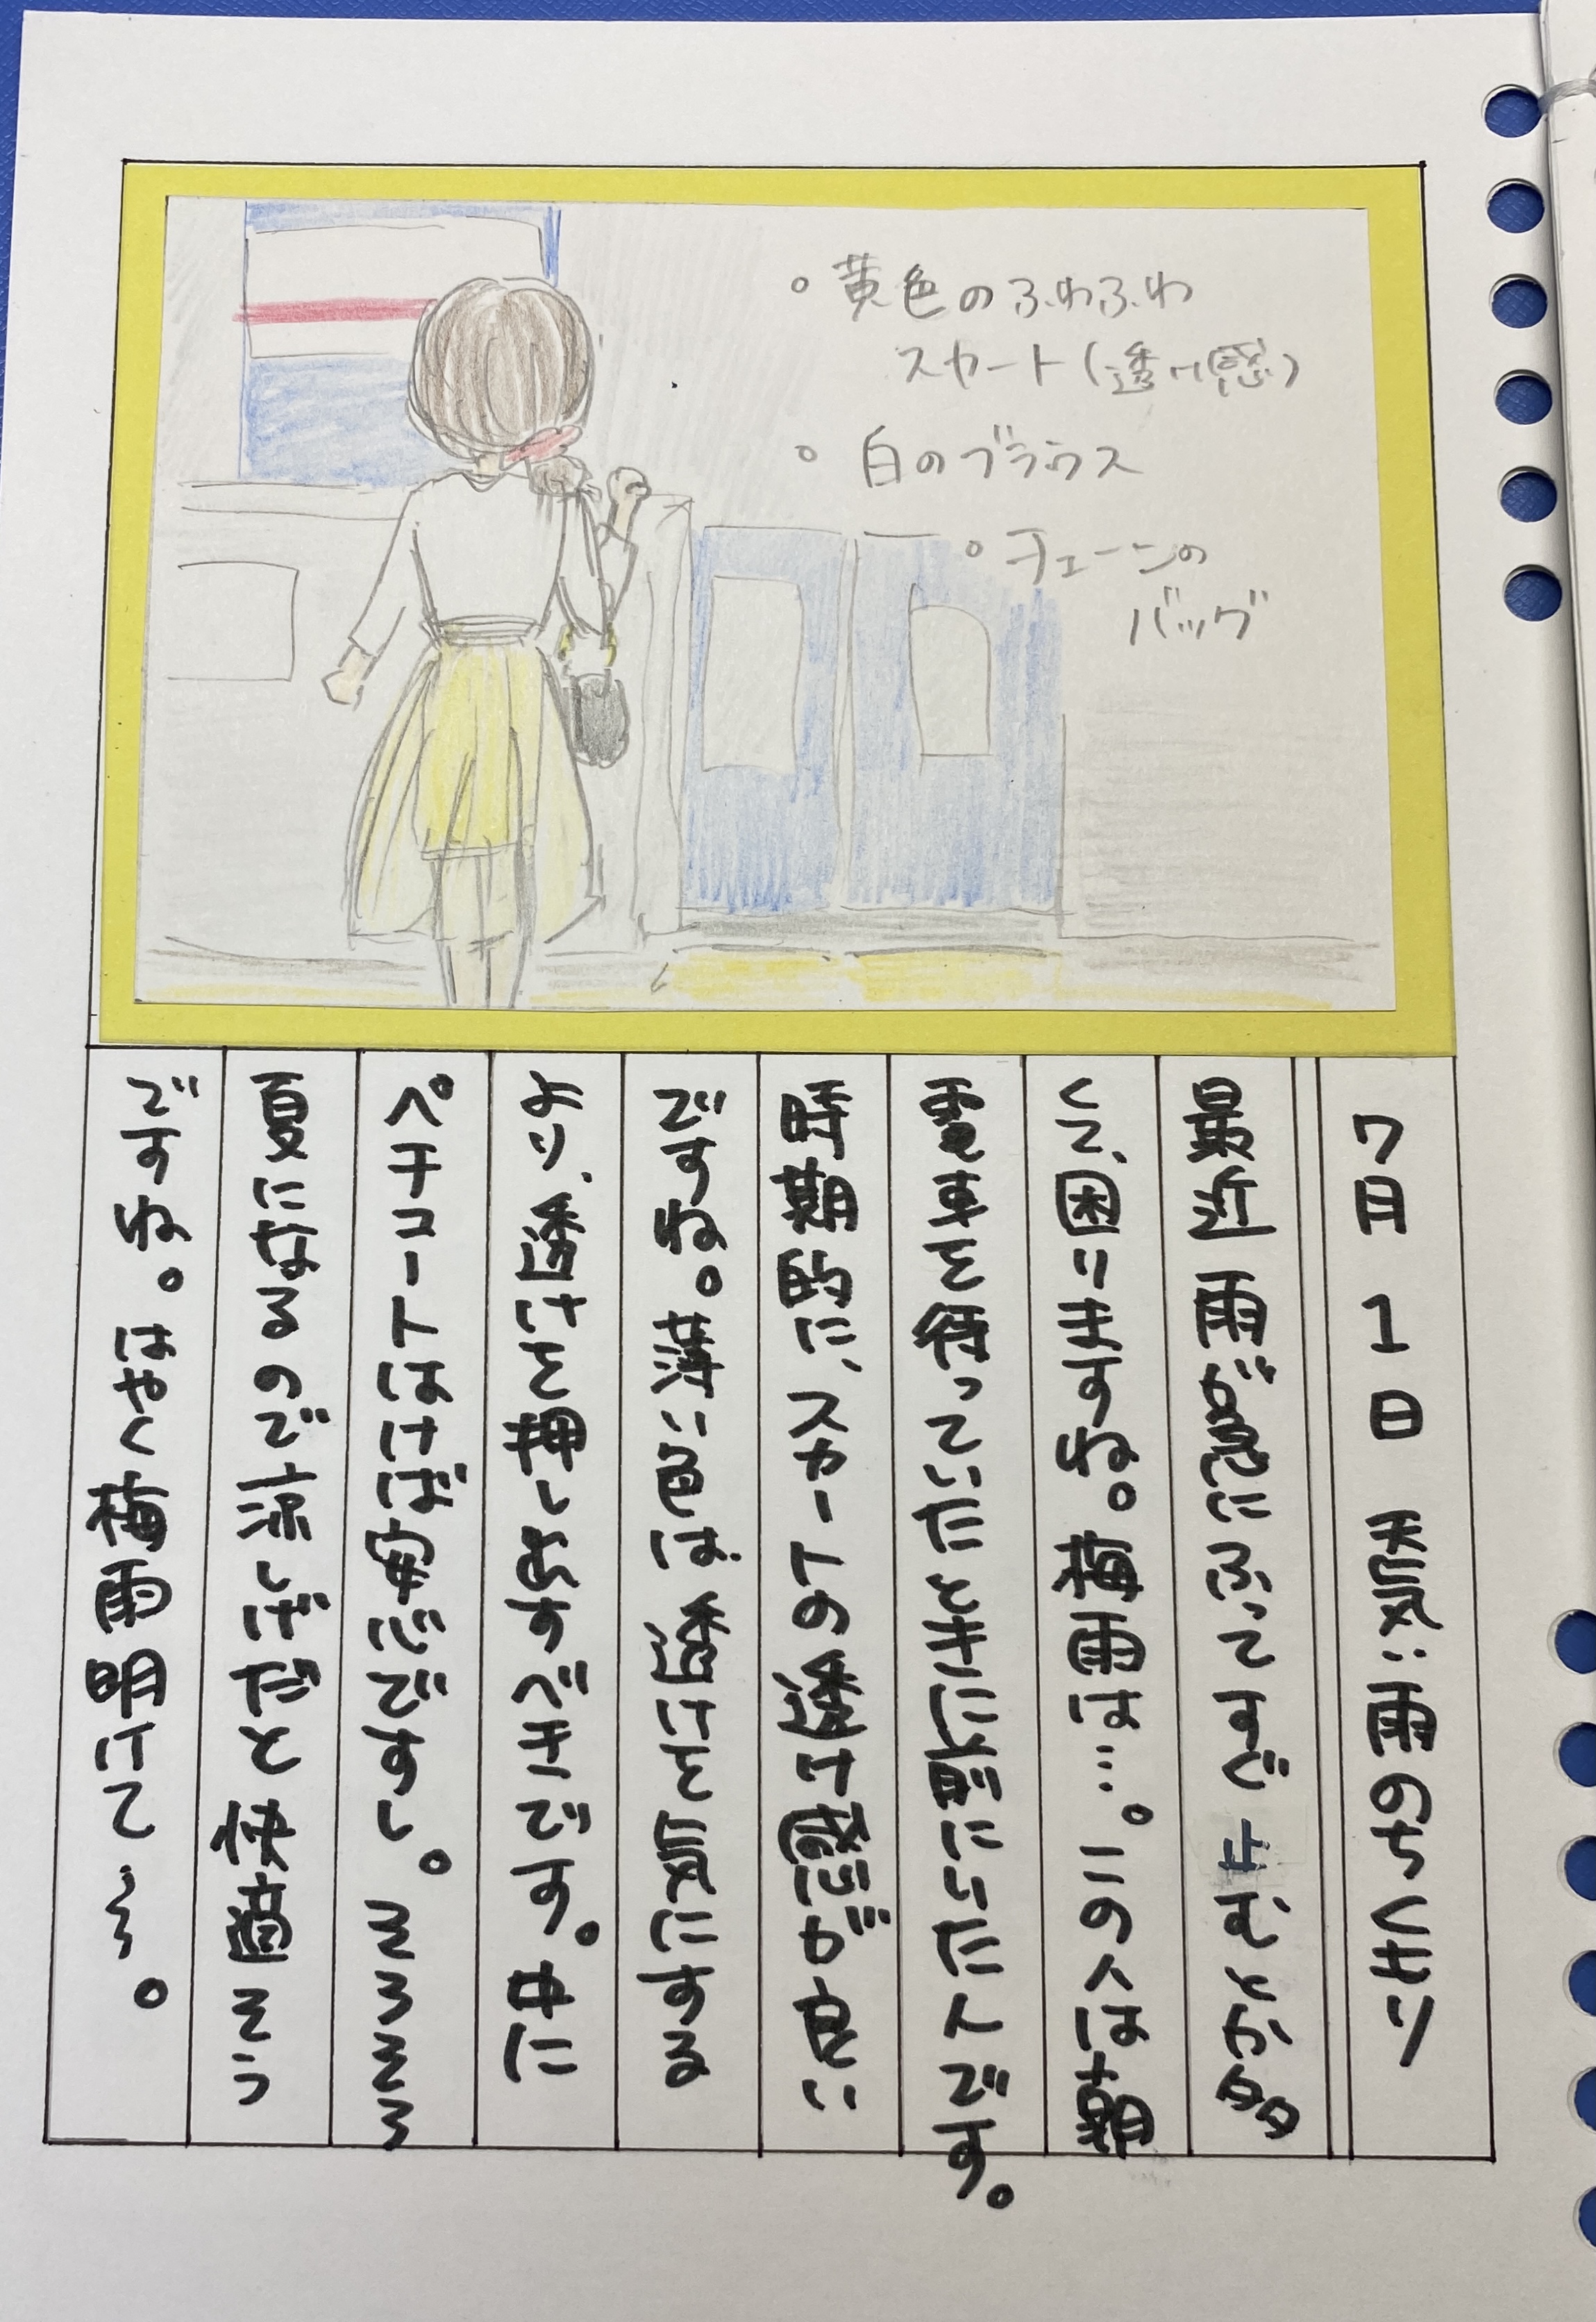 ・黄色のふわふわ
スカート(透け感)
・白のブラウス
・チェーンの
バッグ
7月1日 天気:雨のちくもり
最近雨が急にふってすぐ止むとか多
くて、困りますね。梅雨は…。この人は朝
電車を待っていたときに駅にいた人です。
時期的に、スカートの透け感が良い
ですね。薄い色は透けを気にする
より、透けを押し出すべきです。中に
ペチコートはけば安心ですし。そろそろ
夏になるので涼しげだと快適そう
ですね。はやく梅雨明けて〜。